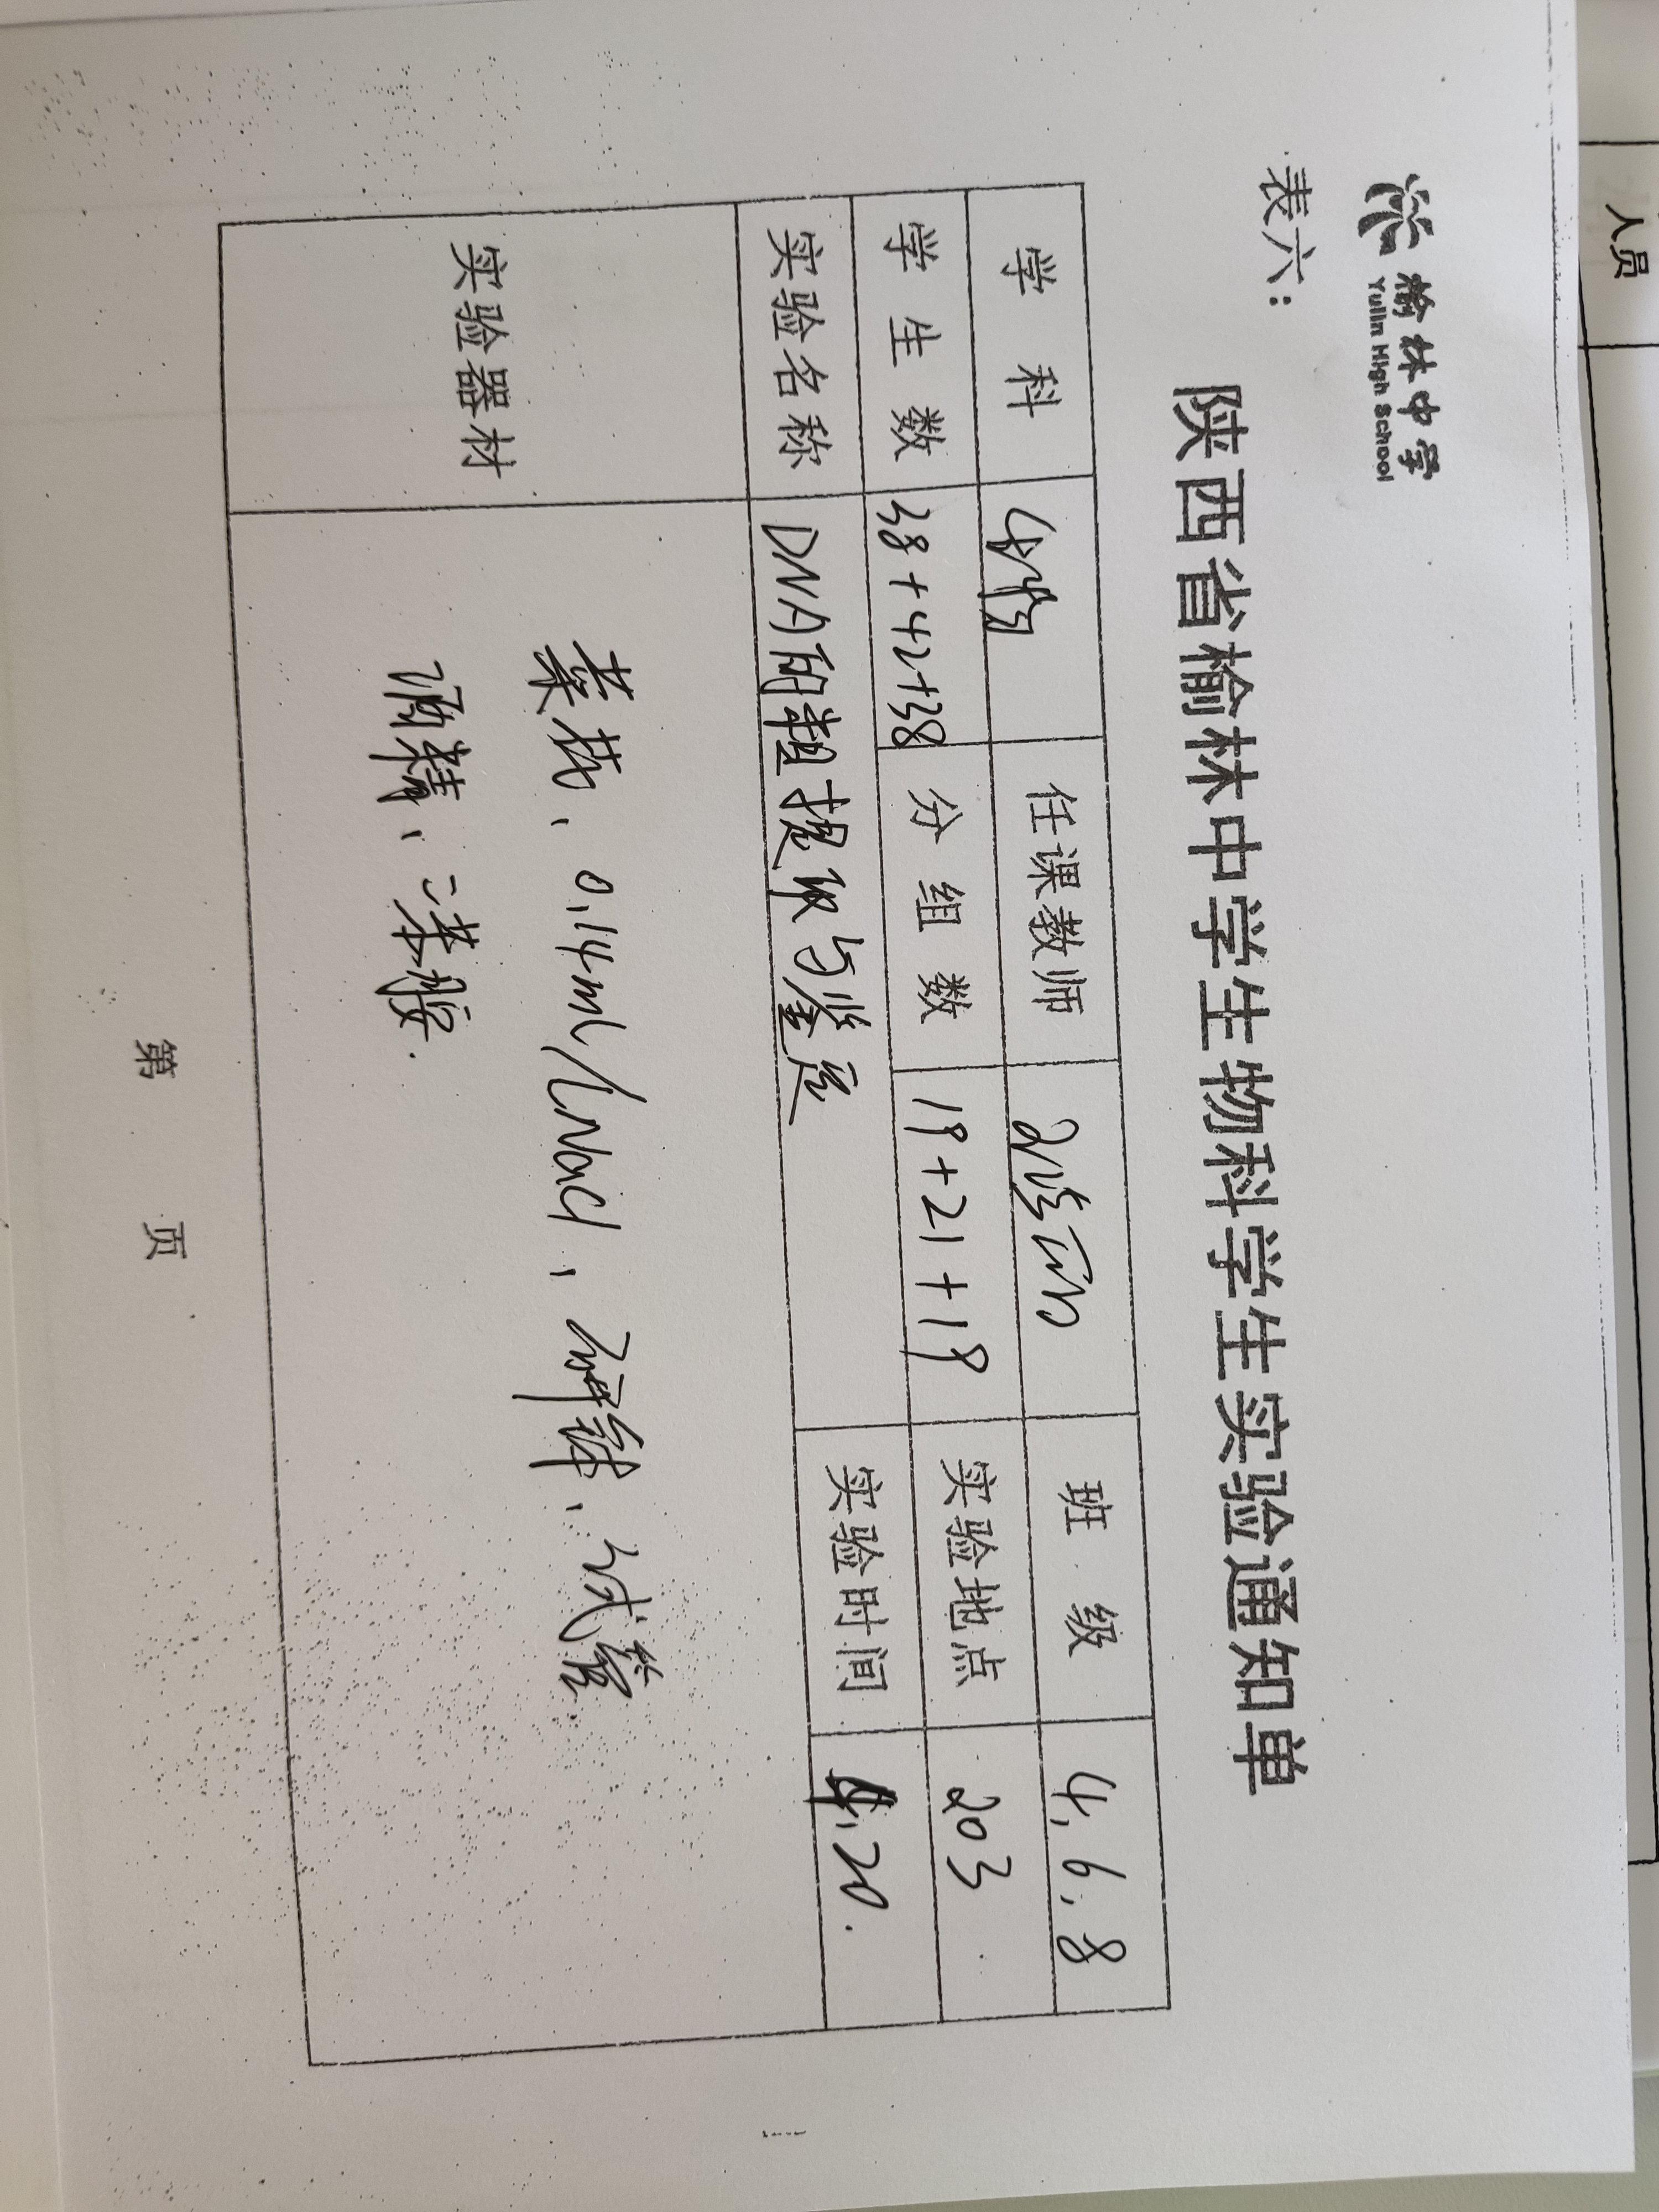 榆林中学
Yulin High School
表六：
陕西省榆林中学学生生物科学学生实验通知单
学 科 生物 任课教师 班 级 4, 6, 8
学 生 数 38+42+38 分 组 数 19+21+19 实验地点 203
实验名称 DNA的粗提取与鉴定 实验时间 4.20.
实验器材
菜花、0.14ml/LNaCl、研钵、试管
酒精、二苯胺.
第 页
人员